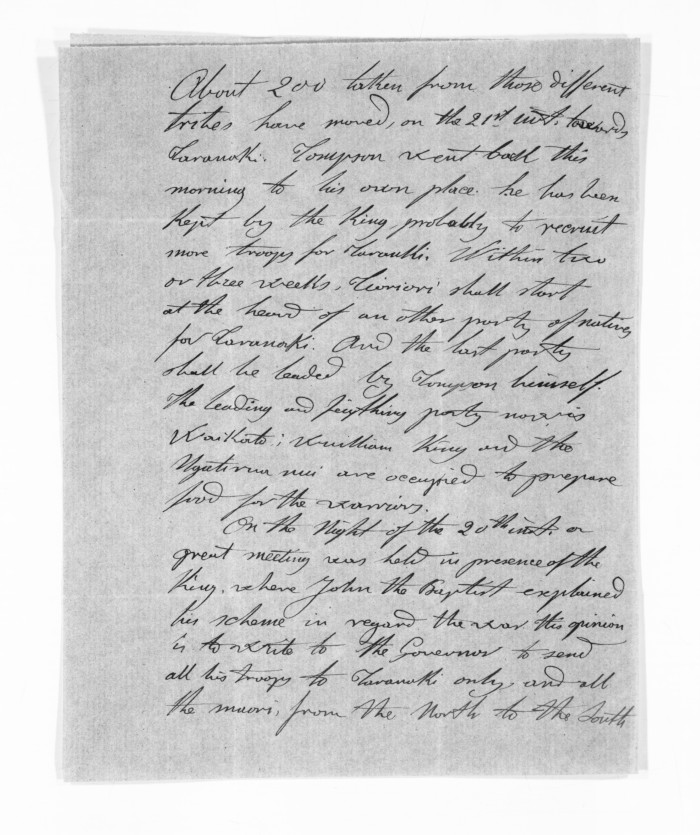 About 200 taken from those different
tribes have moved, on the 21st inst. towards
Taranaki. Tompson went back this
morning to his own place. he has been
Kept by the King probably to recruit
more troops for Taranaki. Within two
or three weeks, Tioriori shall start
at the heard of an other party of natives
for Taranaki. And the last party
shall be leaded by Tompson himself.
The leading and feigthing party now is
Waikato; William King and the
Ngatirua nui are occupied to prepare
food for the warriors.
On the Night of the 20th inst. a
great meeting was held in presence of the
King, where John the Baptist explained
his scheme in regard the war this opinion
is to write to the Governor to send
all his troops to Taranaki only, and all
the maori, from the North to the South